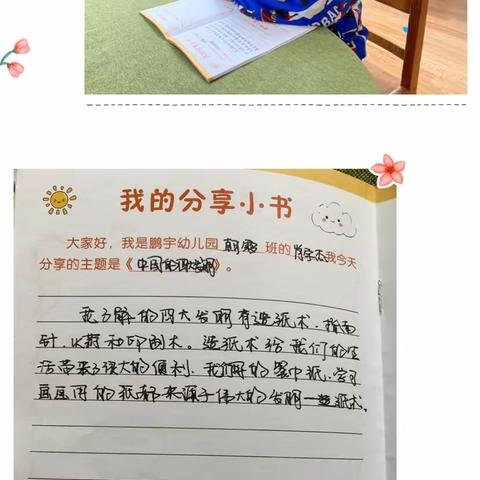 我的分享小书
大家好，我是鹏宇幼儿园 朝霞 班的 我今天
分享的主题是《中国的四大发明》。
我了解的四大发明有造纸术、指南
针、火药和印刷术。造纸术给我们的生
活带来了很大的便利、我们用的餐巾纸、学习
画画用的纸都来源于伟大的发明—造纸术。